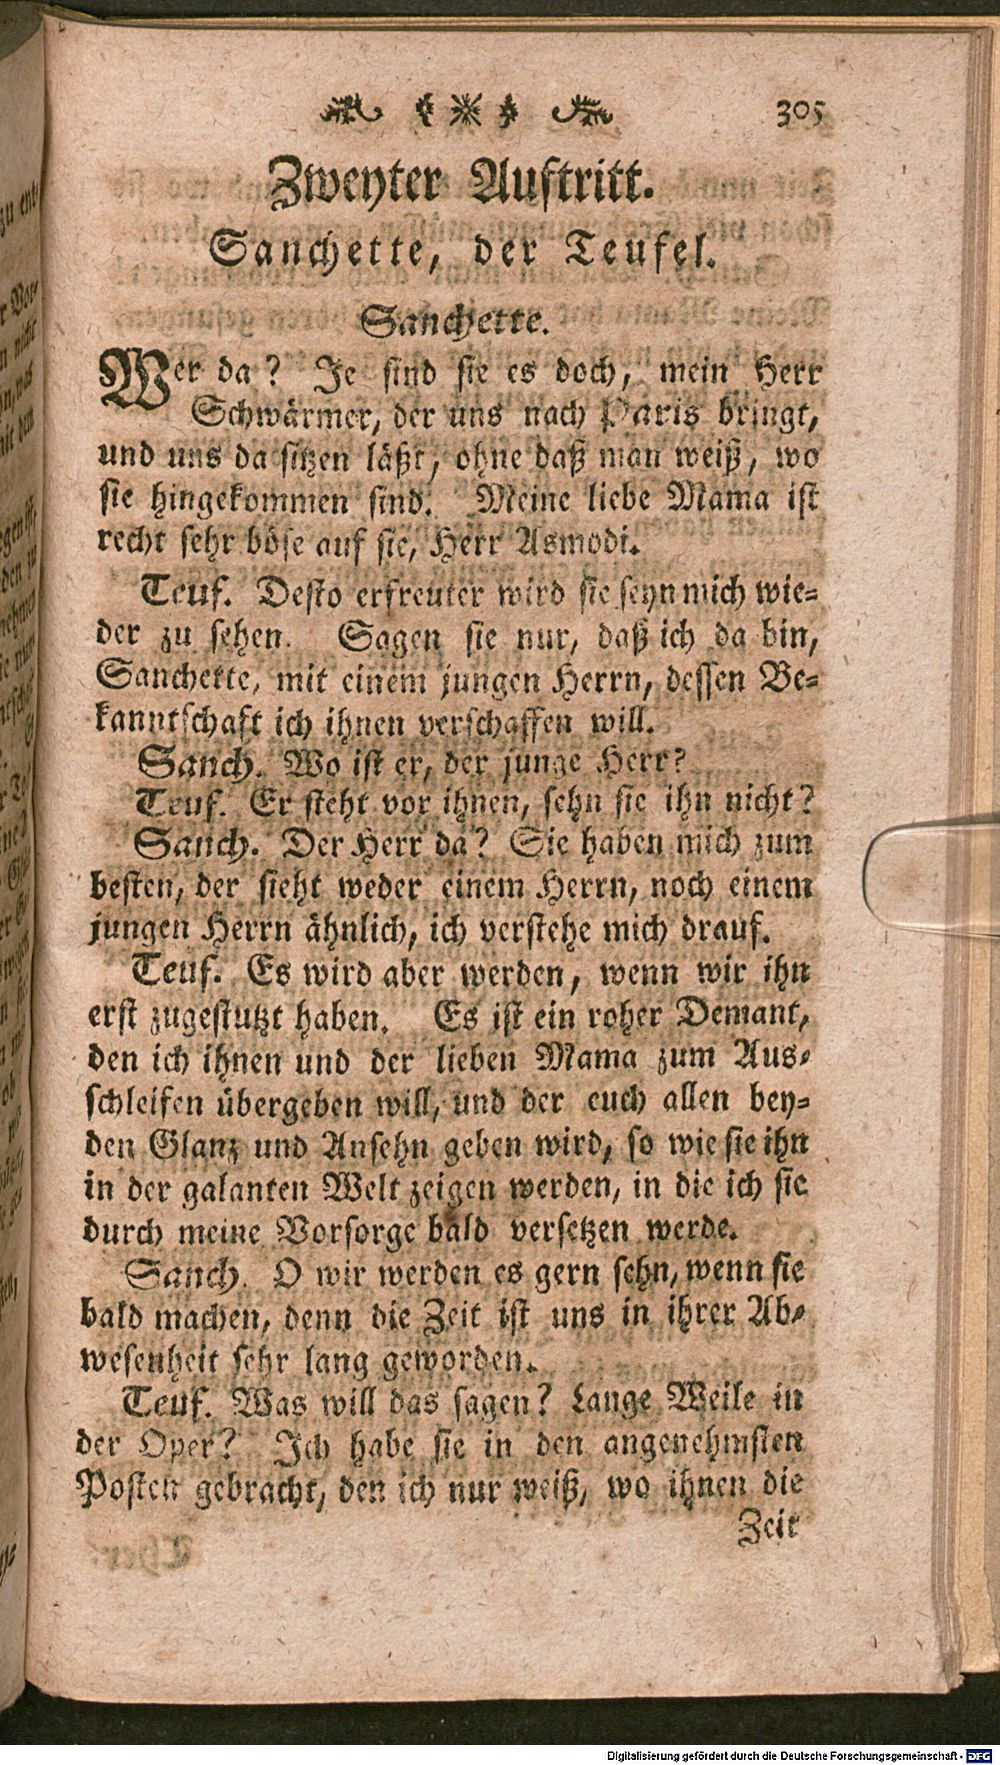 305
Zweyter Auftritt.
Sanchette, der Teufel.
Sanchette.
Wer da? Je sind sie es doch, mein Herr
Schwärmer, der uns nach Paris bringt,
und uns da sitzen läßt, ohne daß man weiß, wo
sie hingekommen sind. Meine liebe Mama ist
recht sehr böse auf sie, Herr Asmodi.
Teuf. Desto erfreuter wird sie seyn mich wie=
der zu sehen. Sagen sie nur, daß ich da bin,
Sanchette, mit einem jungen Herrn, dessen Be=
kanntschaft ich ihnen verschaffen will.
Sanch. Wo ist er, der junge Herr?
Teuf. Er steht vor ihnen, sehn sie ihn nicht?
Sanch. Der Herr da? Sie haben mich zum
besten, der sieht weder einem Herrn, noch einem
jungen Herrn ähnlich, ich verstehe mich drauf.
Teuf. Es wird aber werden, wenn wir ihn
erst zugestutzt haben. Es ist ein roher Demant,
den ich ihnen und der lieben Mama zum Aus=
schleifen übergeben will, und der euch allen bey=
den Glanz und Ansehn geben wird, so wie sie ihn
in der galanten Welt zeigen werden, in die ich sie
durch meine Vorsorge bald versetzen werde.
Sanch. O wir werden es gern sehn, wenn sie
bald machen, denn die Zeit ist uns in ihrer Ab=
wesenheit sehr lang geworden.
Teuf. Was will das sagen? Lange Weile in
der Oper? Ich habe sie in den angenehmsten
Posten gebracht, den ich nur weiß, wo ihnen die
Zeit
Digitalisierung gefördert durch die Deutsche Forschungsgemeinschaft - DFG